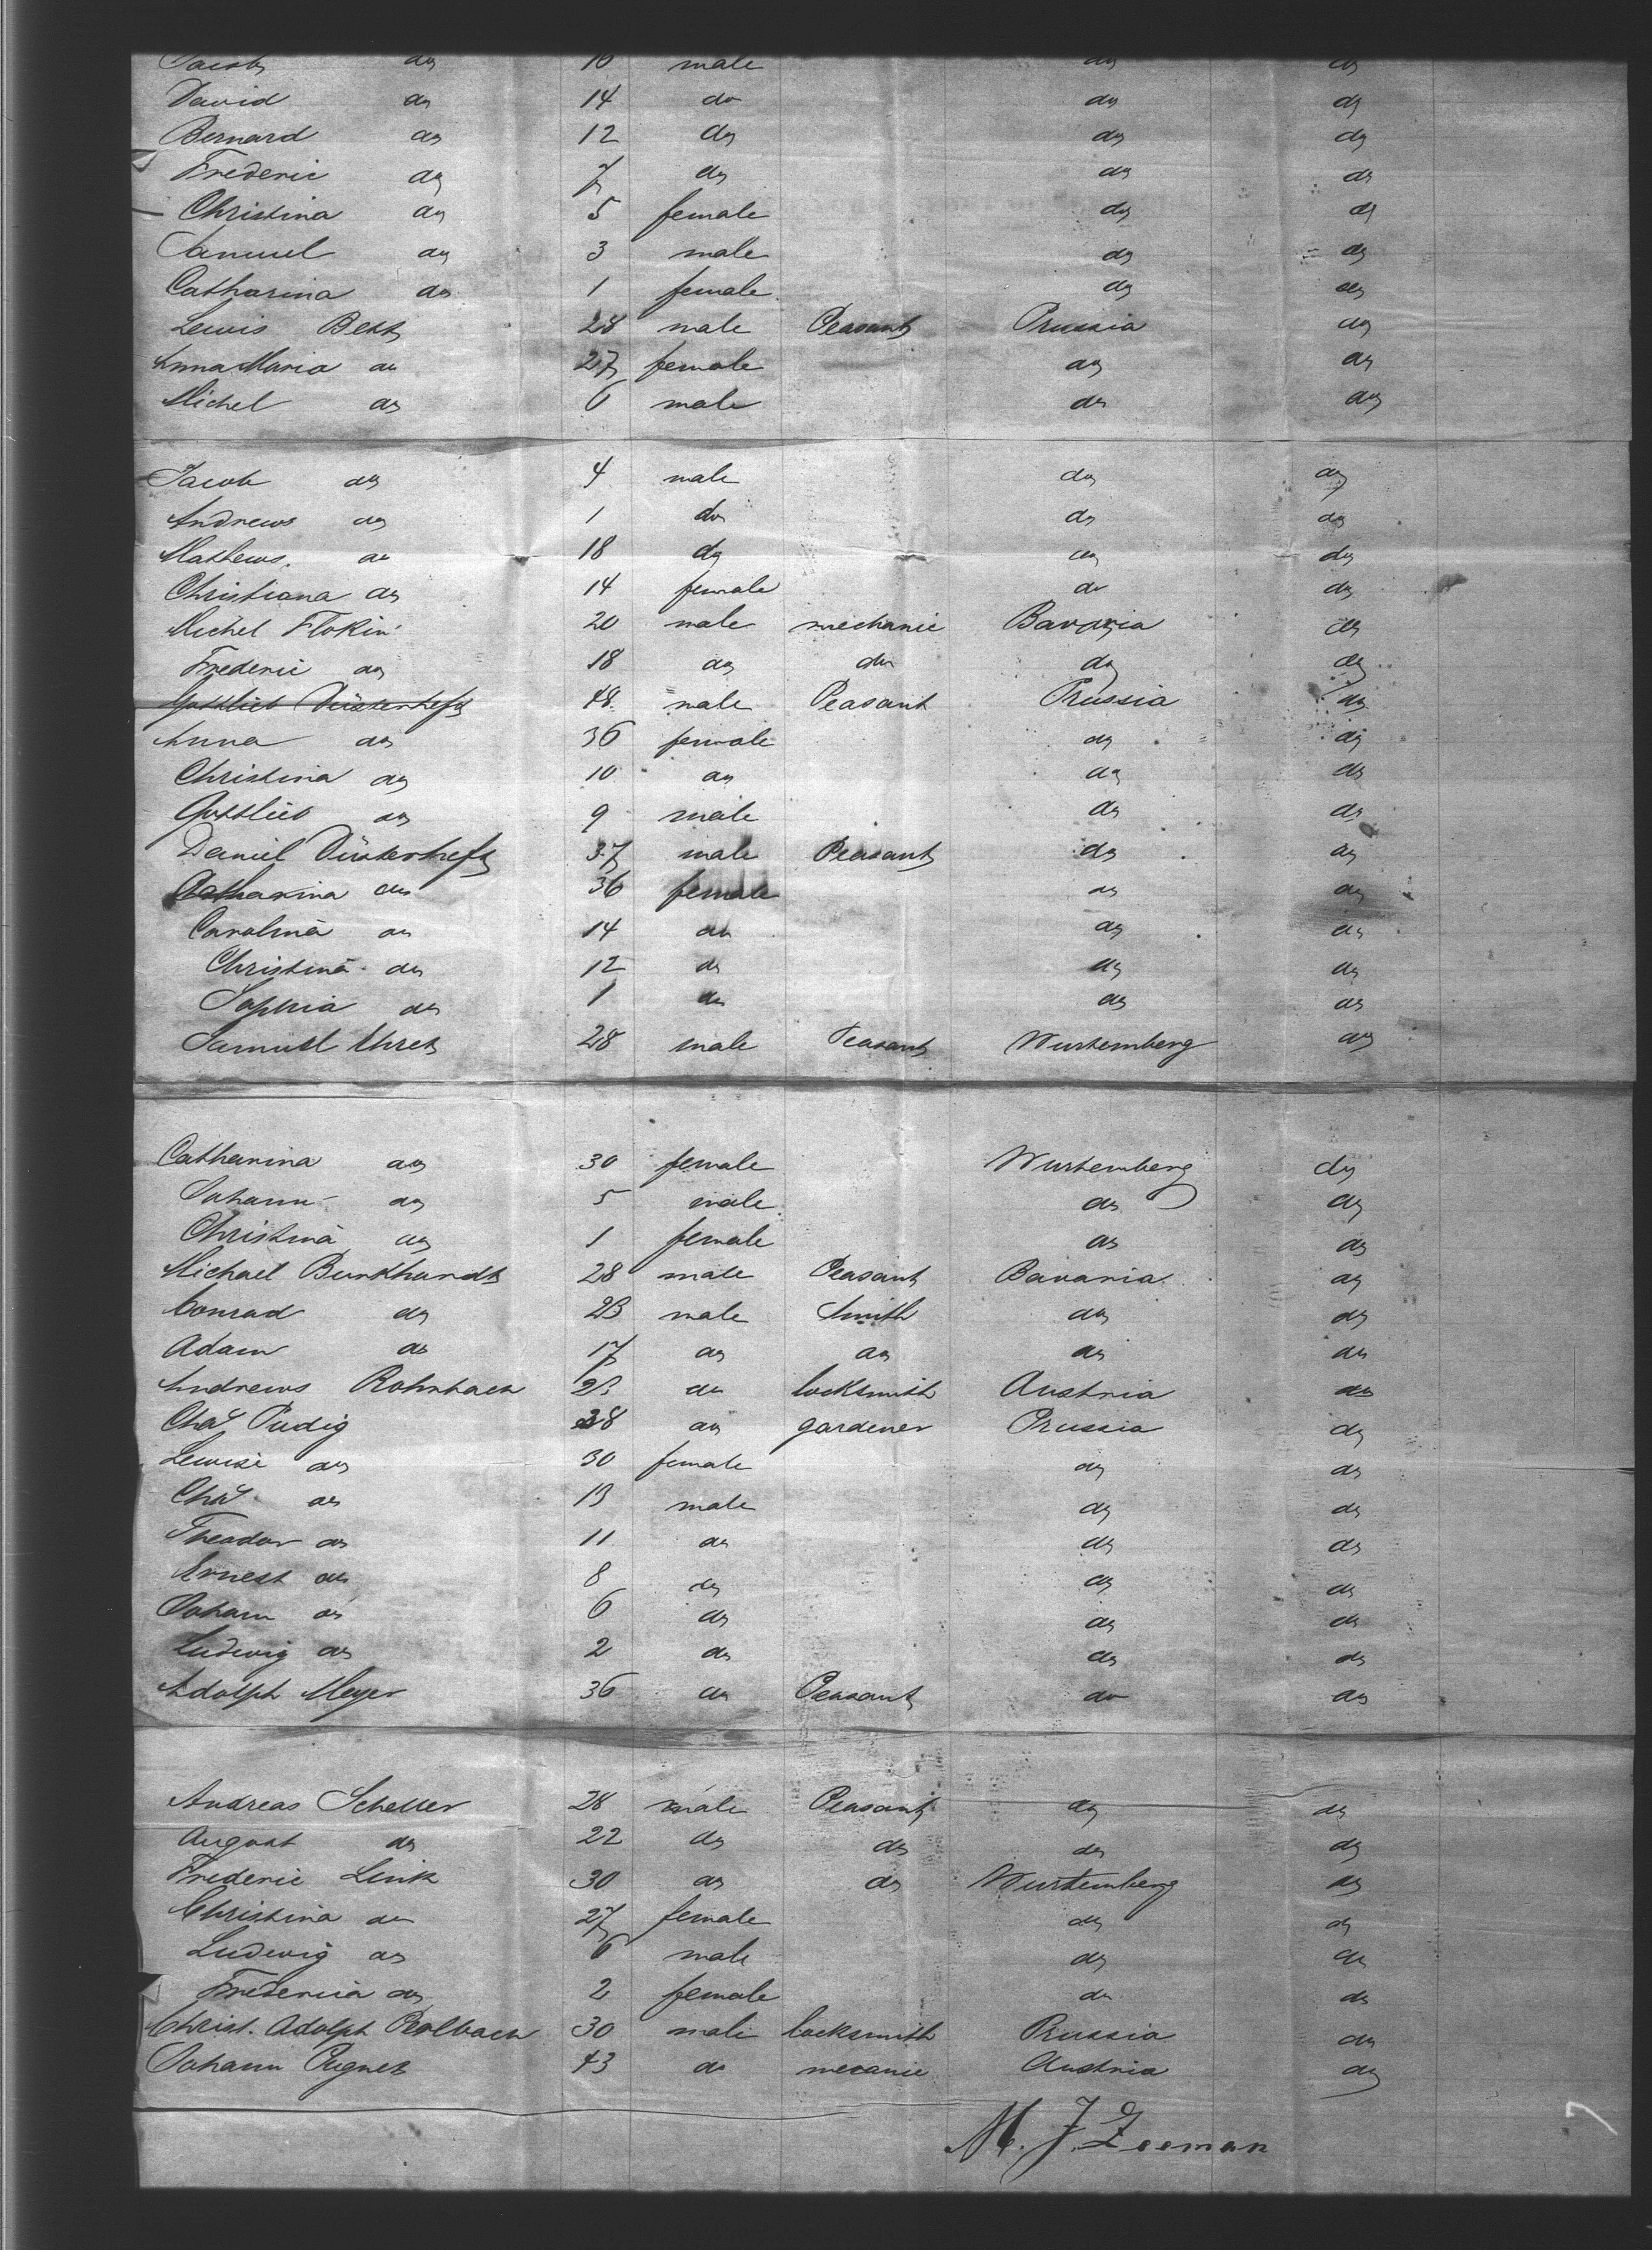 Jacob do 16 male do do
David do 14 do do do
Bernard do 12 do do do
Frederic do 7 do do do
Christina do 5 female do do
Samuel do 3 male do do
Catharina do 1 female do do
Lewis Betz 28 male Peasant Prussia do
Anna Maria do 27 female do do
Michel do 6 male do do
Jacob do 4 male do do
Andrews do 1 do do do
Mathews. do 18 do do do
Christiana do 14 female do do
Michel Flokin 20 male mechanic Bavaria do
Frederic do 18 do do do do
Gottlieb Düsterheft 48 male Peasant Prussia do
Anna do 36 female do do
Christina do 10 do do do
Gottlieb do 9 male do do
Daniel Düsterheft 37 male Peasant do do
Catharina do 36 female do do
Carolina do 14 do do do
Christina do 12 do do do
Sophia do 1 do do do
Samuel 28 male Peasant Wurtemberg do
Catharina do 30 female Wurtemberg do
Johann do 5 male do do
Christina do 1 female do do
Michael Burkhardt 28 male Peasant Bavaria do
Conrad do 23 male Smith do do
Adam do 17 do do do do
Andrews Rohrbach 23 do locksmith Austria do
Chas Pudig 38 do gardener Prussia do
Lewise do 30 female do do
Chas do 13 male do do
Theodor do 11 do do do
Ernest do 8 do do do
Johann do 6 do do do
Ludewig do 2 do do do
Adolph Meyer 36 do Peasant do do
Andreas Scheller 28 male Peasant do do
August do 22 do do do do
Frederic Link 30 do do Wurtemberg do
Christina do 27 female do do
Ludewig do 6 male do do
Fredericia do 2 female do do
Christ. Adolph 30 male locksmith Prussia do
Johann 43 do mecanic Austria do
M. J. Zeeman
7